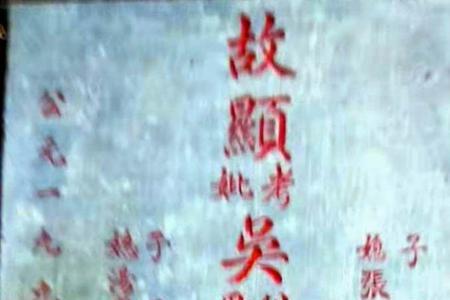 子
媳張
故顯考妣吳
子
媳湯
公元一九九